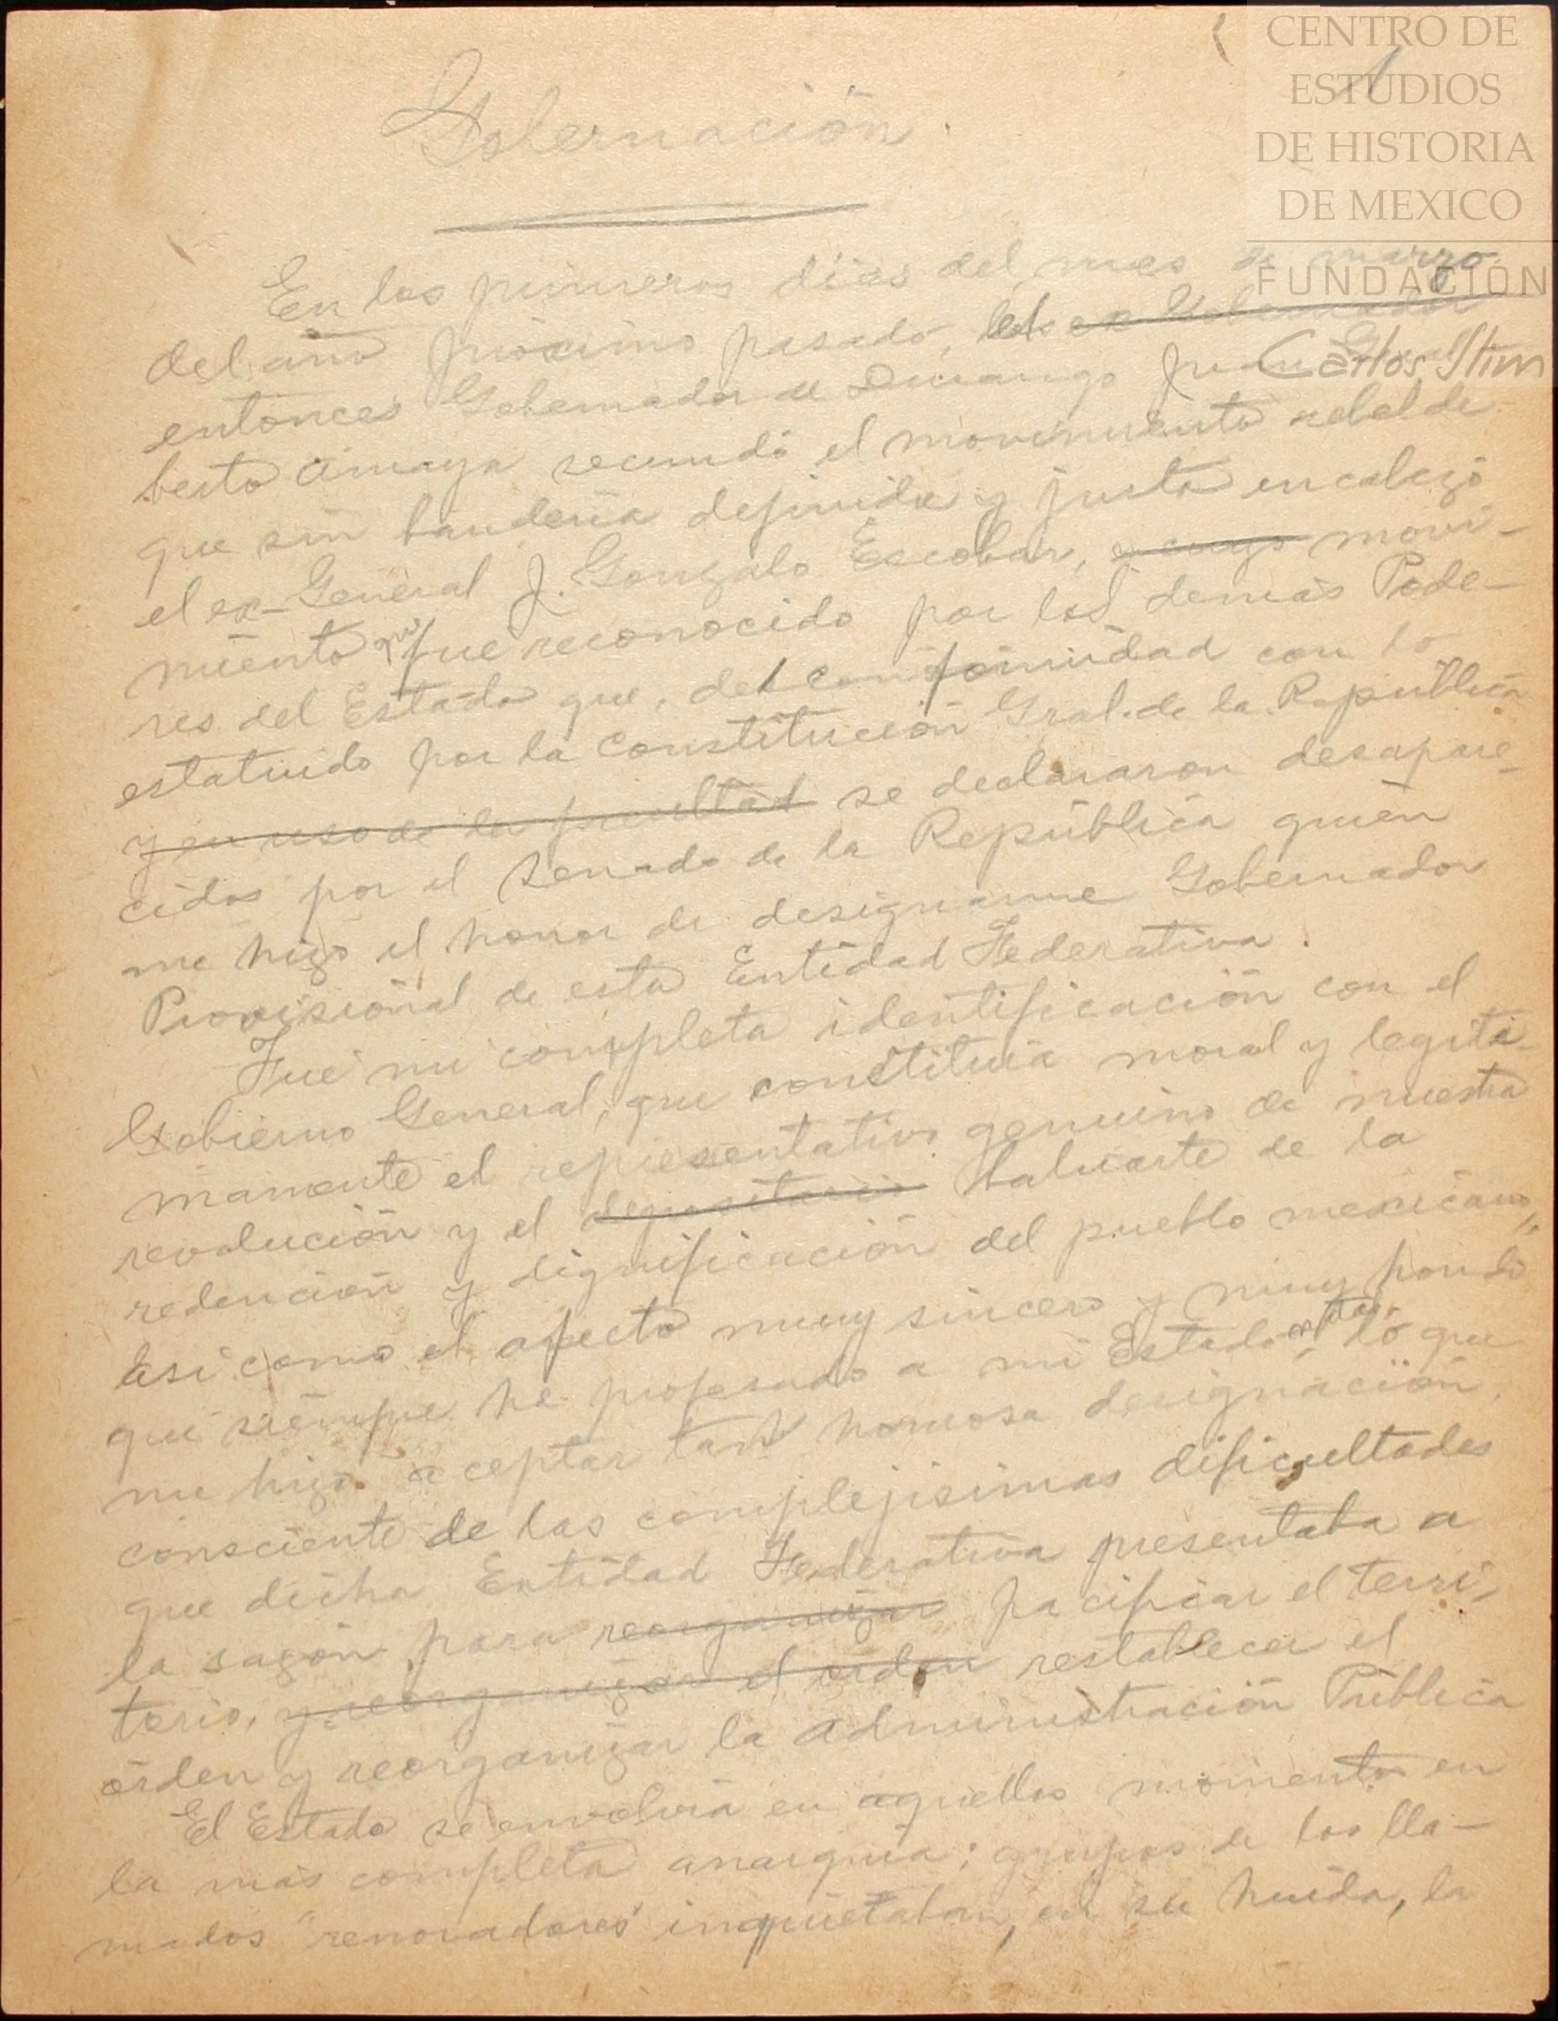 1
Gobernación.
En los primeros días del mes de marzo
del año próximo pasado, el ex Gobernador
entonces Gobernador de Durango Juan Gual-
berto Amaya secundó el movimiento rebelde
que sin bandería definida y justa encabezó
el ex-General J. Gonzalo Escobar, y cuyo movi-
miento que fue reconocido por los demás Pode-
res del Estado que, de conformidad con lo
estatuido por la Constitución Gral. de la República
y en uso de la facultad se declararon desapare-
cidos por el Senado de la República quien
me hizo el honor de designarme Gobernador
Provisional de esta Entidad Federativa.
Fué mi completa identificación con el
Gobierno General, que constituía moral y legiti-
mamente el representativo genuino de nuestra
revolución y el depositario baluarte de la
redención y dignificación del pueblo mexicano,
así como el afecto muy sincero y muy hondo
que siempre he profesado a mi Estado natal, lo que
me hizo aceptar tan honrosa designación,
consciente de las complejísimas dificultades
que dicha Entidad Federativa presentaba a
la sazón para reorganizar pacificar el terri-
torio, y reorganizar el orden restablecer el
órden y reorganizar la Administración Pública
El Estado se envolvía en aquellos momentos en
la más completa anarquía; grupos de los lla-
mados "renovadores" inquietaban, en su huída, la
CENTRO DE
ESTUDIOS
DE HISTORIA
DE MEXICO
FUNDACIÓN
Carlos Slim